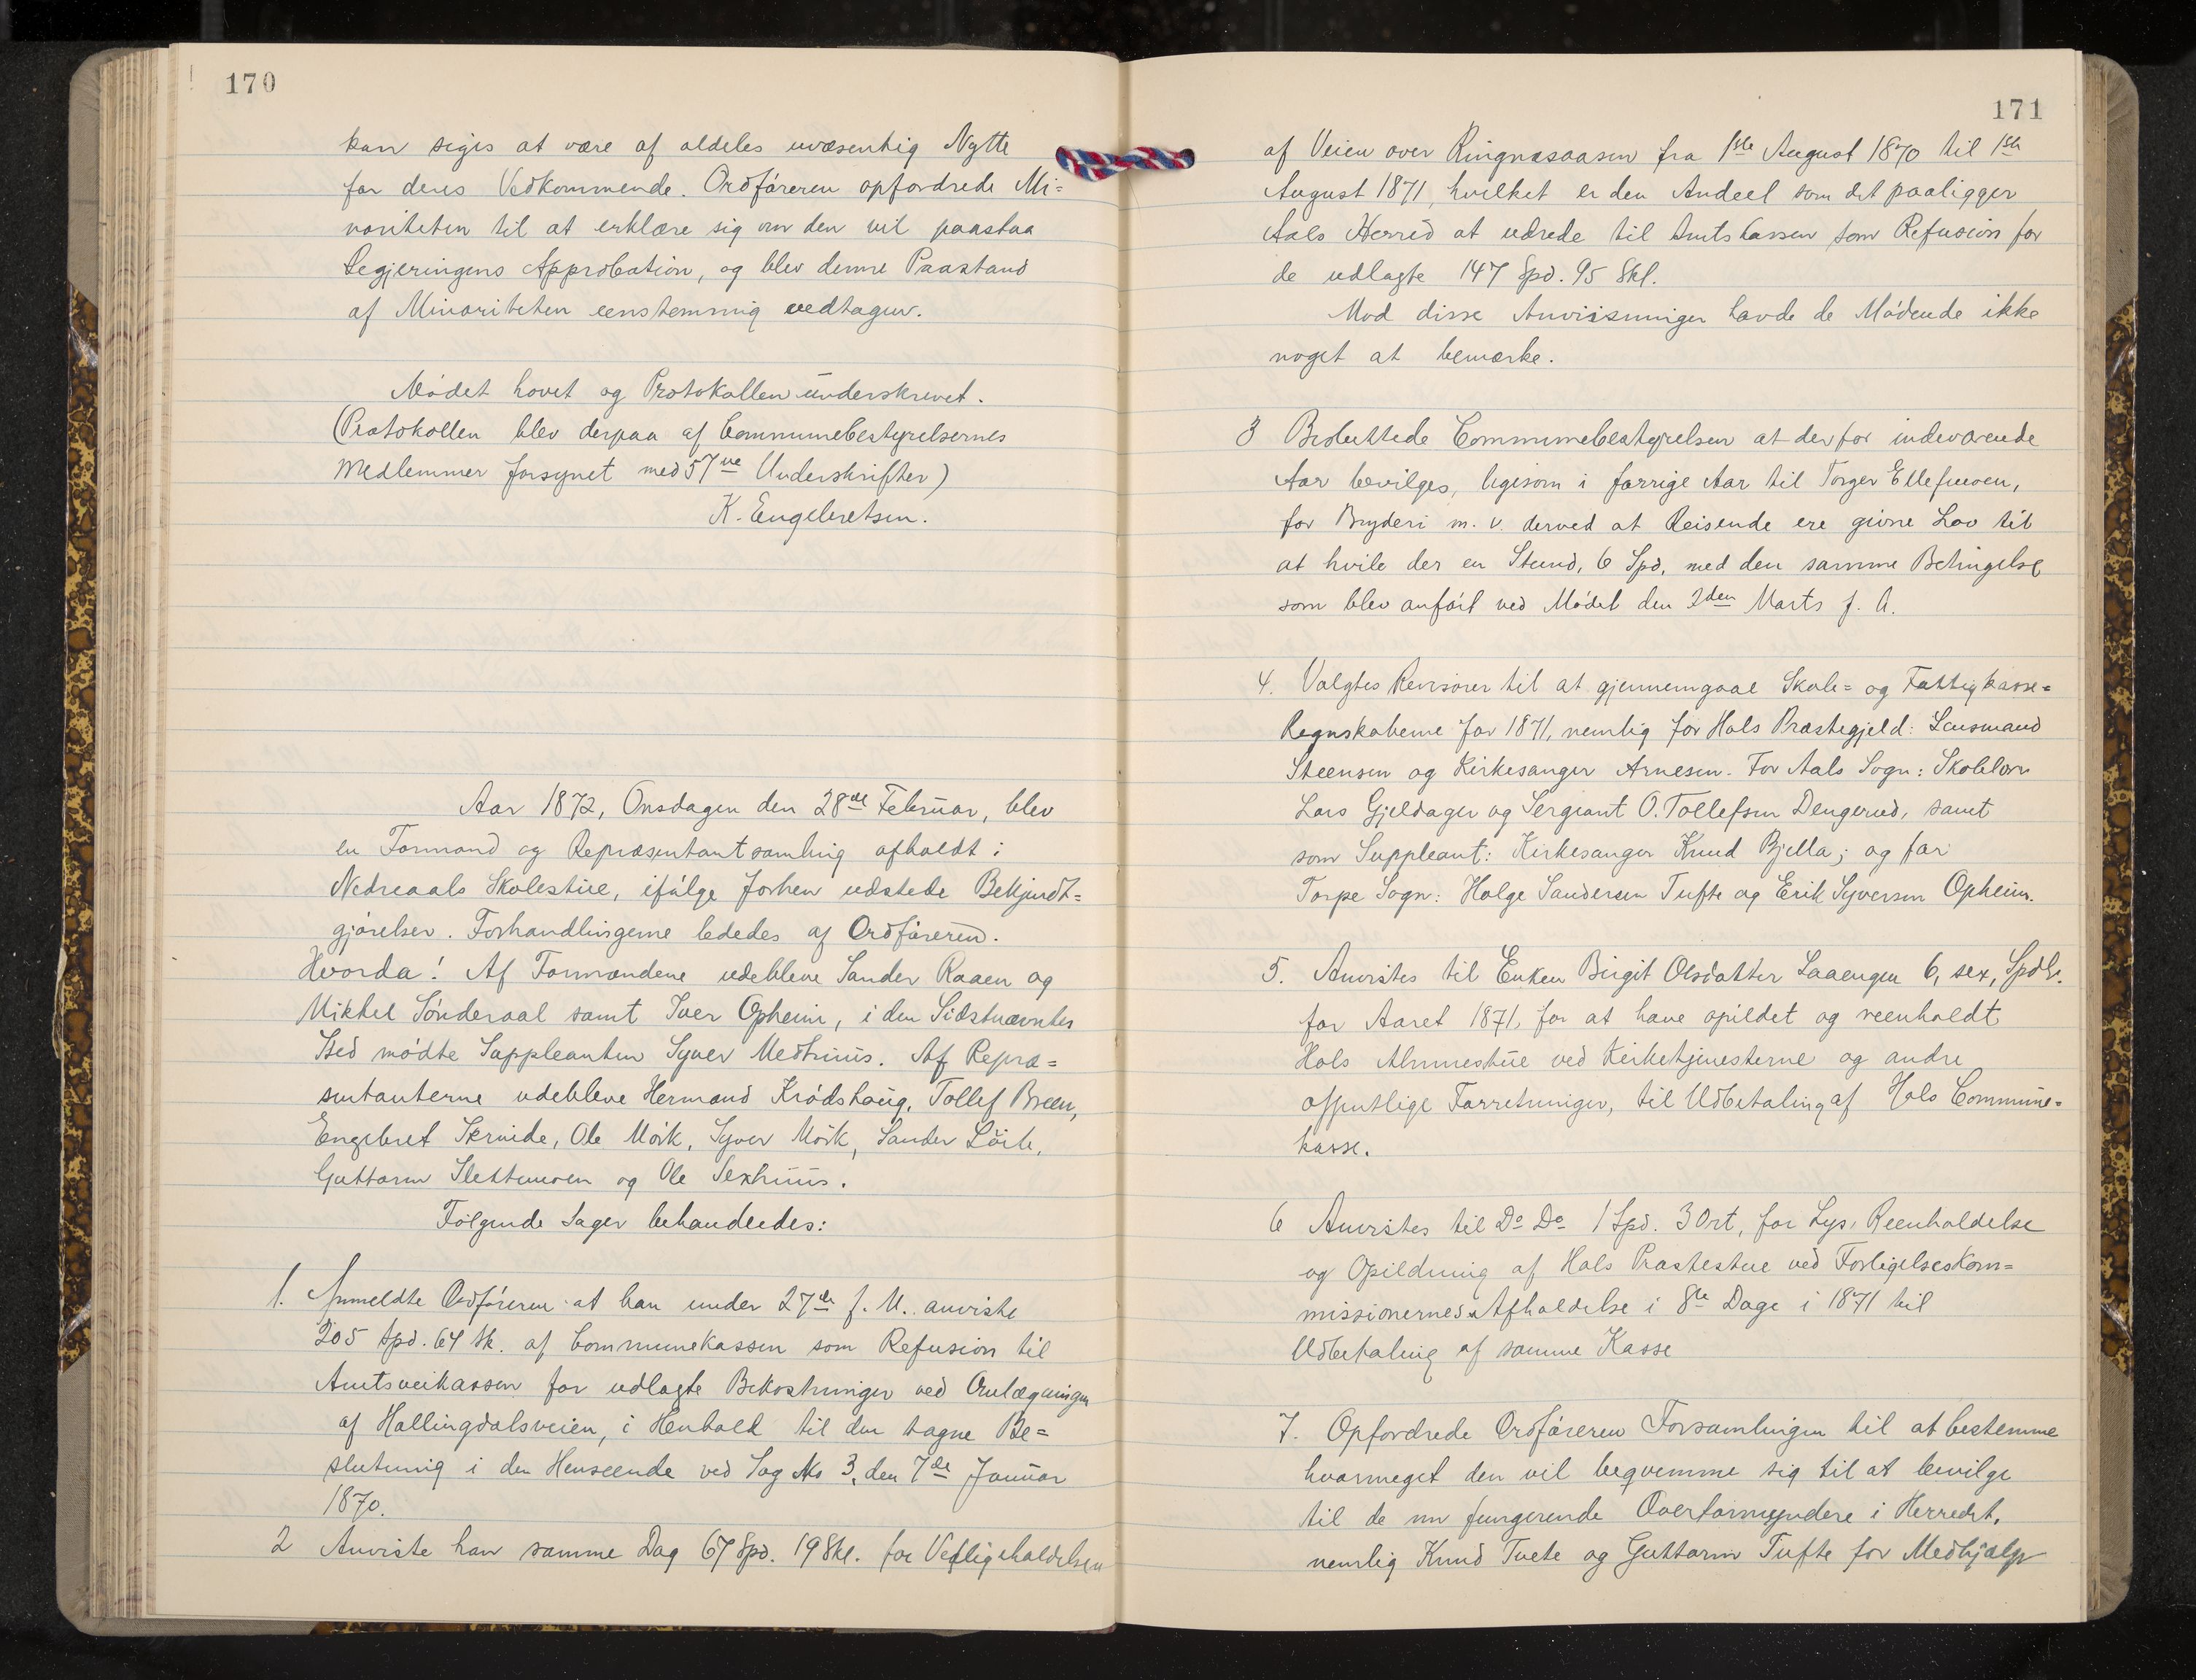 170
kan siges at være af aldeles uvæsentlig Nytte
for deres Vedkommende. Ordføreren opfordrede Mi=
noriteten til at erklære sig om den vil paastaa
Regjeringens Approbation, og blev denne Paastand
af Minoriteten eenstemmig vedtagen.
Mødet hævet og Protokollen underskrevet.
(Protokollen blev derpaa af Communebestyrelsernes
Medlemmer forsynet med 57ve Underskrifter)
K. Engebretsen.
Aar 1872, Onsdagen den 28de Februar, blev
en Formand og Repræsentantsamling afholdt i
Nedreaals Skolestue, ifølge forhen udstede Bekjendt=
gjørelser. Forhandlingerne lededes af Ordføreren.
Hvorda! Af Formændene udebleve Sander Raaen og
Mikkel Sønderaal samt Iver Opheim, i den Sidstnævntes
Sted mødte Suppleanten Syver Medhuus. Af Repræ=
sentanterne udebleve Hermand Krødshaug, Tollef Breen,
Engebret Skruide, Ole Mørk, Syver Mørk, Sander Løile,
Guttorm Slettemoen og Ole Sexhuus.
Følgende Sager behandledes:
1. Anmeldte Ordføreren at han under 27de f. M. anviste
205 Spd. 64 Sk. af Communekassen som Refusion til
Amtsveikassen for udlagte Bekostninger ved Omlægningen
af Hallingdalsveien, i Henhold til den tagne Be=
slutning i den Henseende ved Sag No 3, den 7de Januar
1870.
2 Anviste han samme Dag 67 Spd. 19 Skl. for Vedligeholdelsen
171
af Veien over Ringnæsaasen fra 1ste August 1870 til 1ste
August 1871, hvilket er den Andeel som det paaligger
Aals Herred at udrede til Amtskassen som Refusion for
de udlagte 147 Spd. 95 Skl.
Mod disse Anviisninger havde de Mødende ikke
noget at bemærke.
3 Besluttede Communebestyrelsen at der for indeværende
Aar bevilges, ligesom i forrige Aar til Torger Ellefmoen,
for Bryderi m. v. derved at Reisende ere givne Lov til
at hvile der en Stund, 6 Spd, med den samme Betingelse
som blev anført ved Mødet den 2den Marts f. A.
4. Valgtes Revisorer til at gjennemgaae Skole= og Fattigkasse=
Regnskaberne for 1871, nemlig for Hols Præstegjeld: Lensmand
Steensen og Kirkesanger Arnesen. For Aals Sogn: Skolelærer
Lars Gjeldager og Sergeant O. Tollefsen Dengerud, samt
som Suppleant: Kirkesanger Knud Bjella; og for
Torpe Sogn: Holge Sandersen Tufte og Erik Syversen Opheim.
5. Anvistes til Enken Birgit Olsdatter Laaengen 6, sex, Spdlr.
for Aaret 1871, for at have opildet og reenholdt
Hols Almuestue ved Kirketjenesterne og andre
offentlige Forretninger, til Udbetaling af Hols Commune=
kasse.
6 Anvistes til Do Do 1 Spd. 3 Ort, for Lys, Reenholdelse
og Opildning af Hols Præstestue ved Forligelseskom=
missionernes Afholdelse i 8te Dage i 1871 til
Udbetaling af samme Kasse
7. Opfordrede Ordføreren Forsamlingen til at bestemme
hvormeget den vil beqvemme sig til at bevilge
til de nu fungerende Overformyndere i Herredet,
nemlig Knud Tvete og Guttorm Tufte for Medhjælp